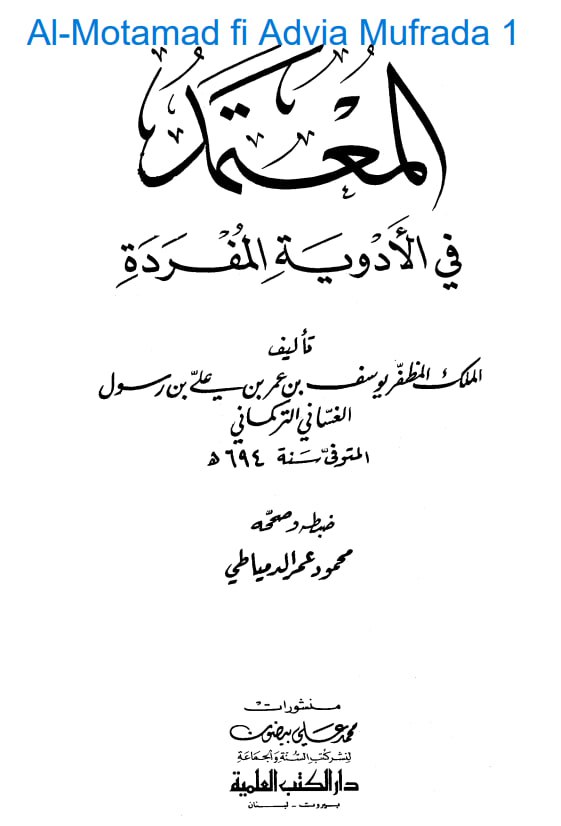 Al-Motamad fi Advia Mufrada 1
المُعْتَمَدُ
في الأَدْوِيَةِ المُفْرَدَةِ
تأليف
الملك المظفّر يوسف بن عمر بن عليّ بن رسول
الغسّاني التركماني
المتوفىّ سَنة ٦٩٤ ﻫ
ضبطه وصحّحه
محمود عمر الدمياطي
منشورات
محمد علي بيضون
لِنشركتبِ السُّنةِ وَالجمَاعَةِ
دار الكتب العلمية
بيروت - لبنان